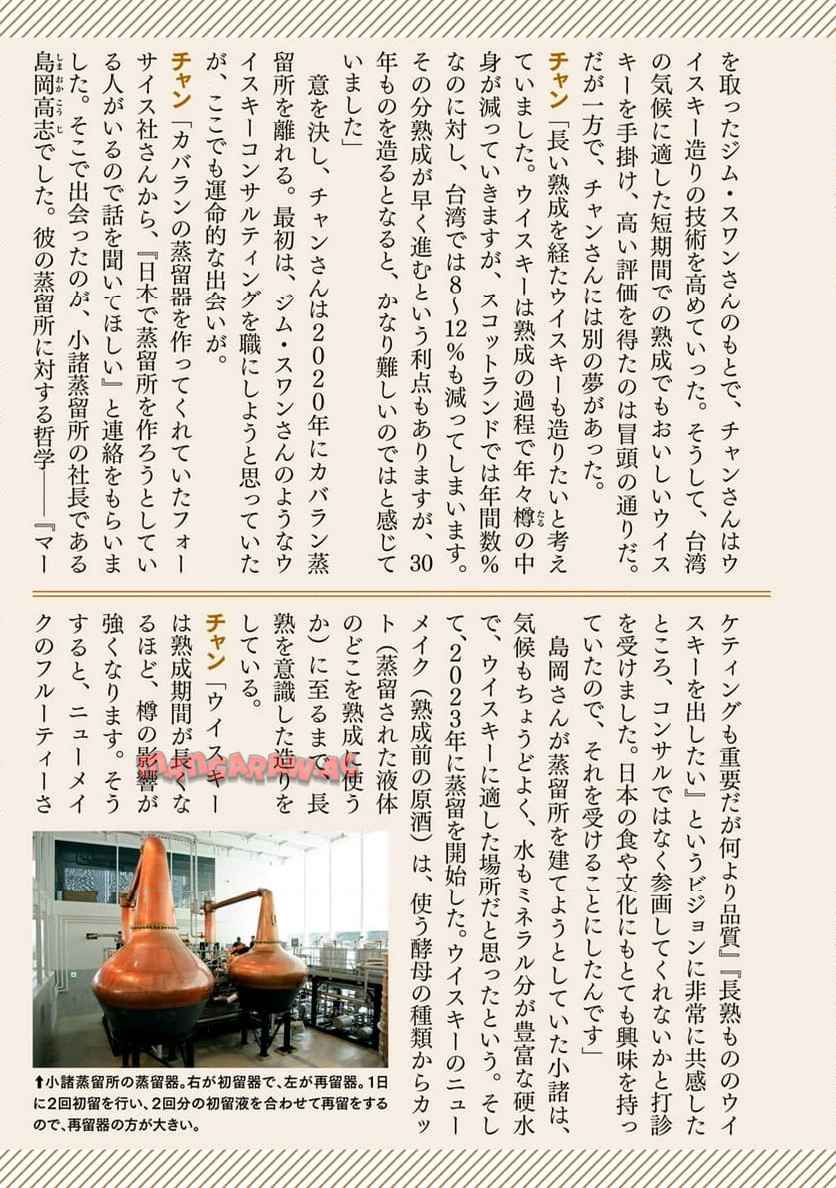 を取ったジム・スワンさんのもとで、チャンさんはウ
イスキー造りの技術を高めていった。そうして、台湾
の気候に適した短期間での熟成でもおいしいウイス
キーを手掛け、高い評価を得たのは冒頭の通りだ。
だが一方で、チャンさんには別の夢があった。
チャン「長い熟成を経たウイスキーも造りたいと考え
ていました。ウイスキーは熟成の過程で年々樽の中
身が減っていきますが、スコットランドでは年間数%
なのに対し、台湾では8〜12%も減ってしまいます。
その分熟成が早く進むという利点もありますが、30
年ものを造るとなると、かなり難しいのではと感じて
いました」
意を決し、チャンさんは2020年にカバラン蒸
留所を離れる。最初は、ジム・スワンさんのようなウ
イスキーコンサルティングを職にしようと思っていた
が、ここでも運命的な出会いが。
チャン「カバランの蒸留器を作ってくれていたフォー
サイス社さんから、『日本で蒸留所を作ろうとしてい
る人がいるので話を聞いてほしい』と連絡をもらいま
した。そこで出会ったのが、小諸蒸留所の社長である
島岡高志でした。彼の蒸留所に対する哲学――『マー
ケティングも重要だが何より品質』『長熟もののウイ
スキーを出したい』というビジョンに非常に共感した
ところ、コンサルではなく参画してくれないかと打診
を受けました。日本の食や文化にもとても興味を持っ
ていたので、それを受けることにしたんです」
島岡さんが蒸留所を建てようとしていた小諸は、
気候もちょうどよく、水もミネラル分が豊富な硬水
で、ウイスキーに適した場所だと思ったという。そし
て、2023年に蒸留を開始した。ウイスキーのニュー
メイク（熟成前の原酒）は、使う酵母の種類からカッ
ト（蒸留された液体
のどこを熟成に使う
か）に至るまで、長
熟を意識した造りを
している。
チャン「ウイスキー
は熟成期間が長くな
るほど、樽の影響が
強くなります。そう
すると、ニューメイ
クのフルーティーさ
⬆小諸蒸留所の蒸留器。右が初留器で、左が再留器。1日
に2回初留を行い、2回分の初留液を合わせて再留をする
ので、再留器の方が大きい。
mangaraw.ac